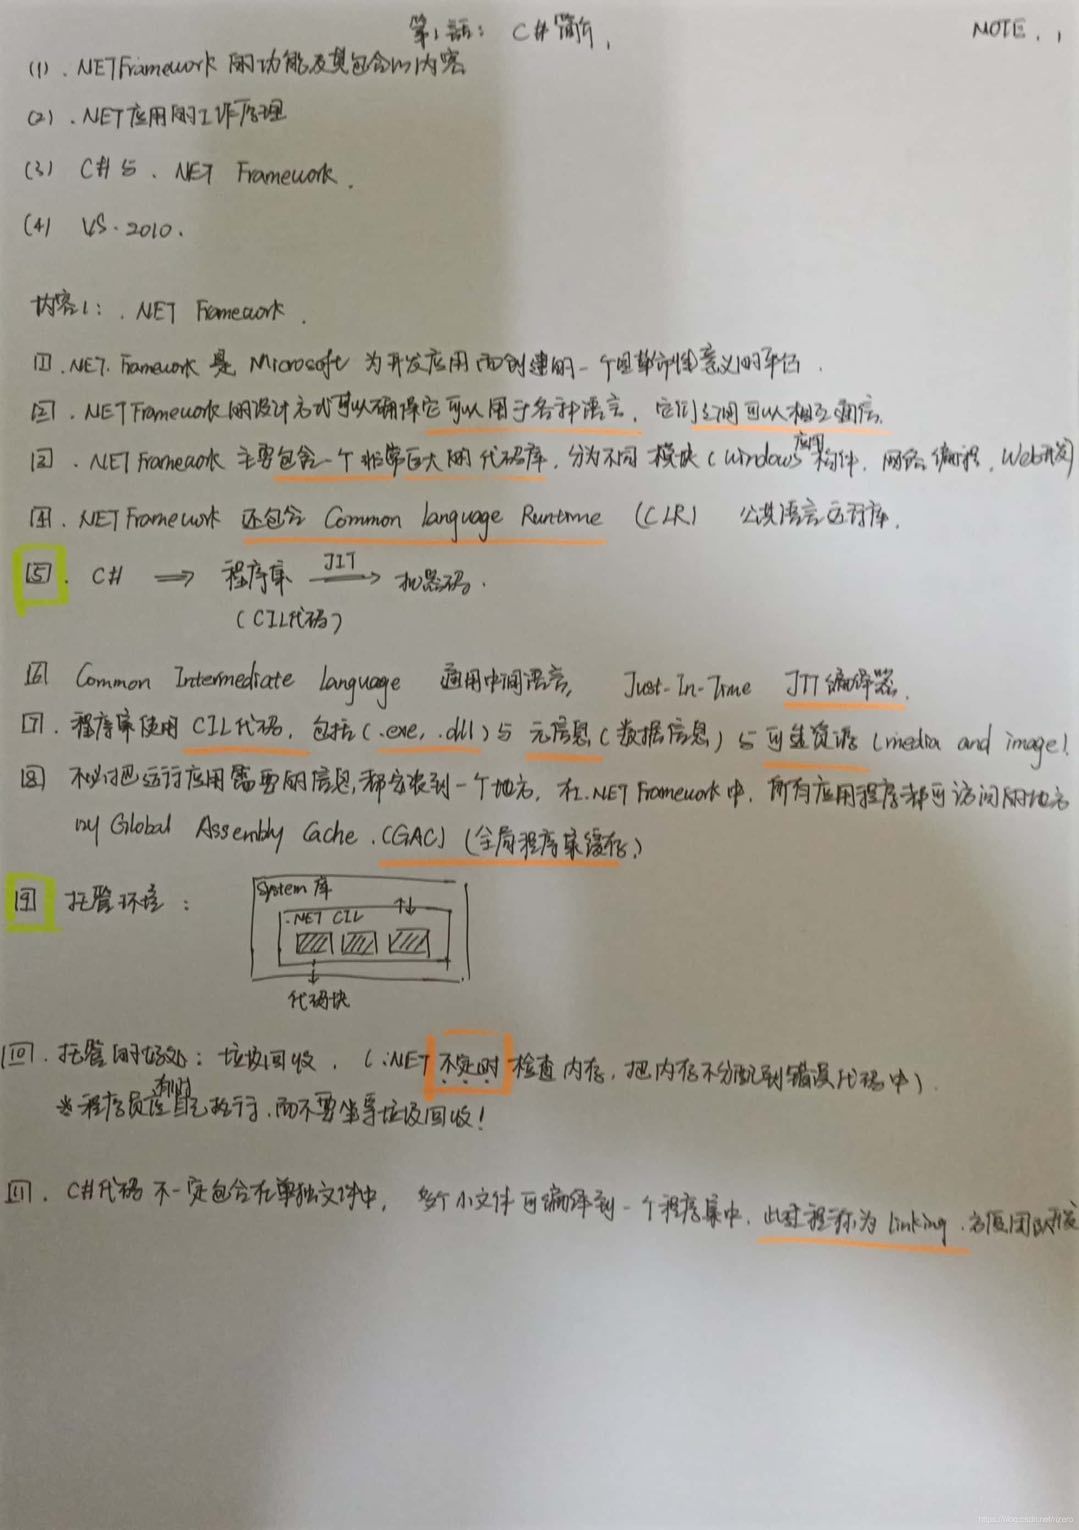 第1話: C#简介,
NOTE. 1
(1) .NETFramework 的功能及其包含的内容
(2) .NET应用的工作原理
(3) C#与 .NET Framework.
(4) VS.2010.
内容1: .NET Framework.
[1] .NET. Framework 是 Microsoft 为开发应用而创建的一个具革命性意义的平台.
[2] .NETFramework的设计方式可以确保它可以用于各种语言, 它们之间可以相互通信.
[3] .NET Framework 主要包含一个非常巨大的代码库, 分为不同模块 (Windows应用构件, 网络编程, Web开发)
[4] .NETFramework 还包含 Common Language Runtime (CLR) 公共语言运行库.
[5]. C# ⟹ 程序集 JIT → 机器码.
(CIL代码)
[6] Common Intermediate Language 通用中间语言, Just-In-Time JIT编译器.
[7]. 程序集使用CIL代码, 包括(.exe, .dll)与元信息(数据信息)与可选资源(media and image).
[8] 不必把运行应用需要的信息,都安装到一个地方, 在.NET Framework中, 所有应用程序都可访问的地方
叫Global Assembly Cache. (GAC) (全局程序集缓存.)
[9] 托管环境:
System 库
.NET CIL ↑↓
代码块
[10]. 托管的好处: 垃圾回收. (.NET 不定时 检查内存, 把内存不分配到错误代码中).
※程序员应有时自己执行, 而不要坐等垃圾回收!
[11]. C#代码不一定包含在单独文件中, 多个小文件可编译到一个程序集中, 此过程称为linking. 方便团队开发
https://blog.csdn.net/rizero